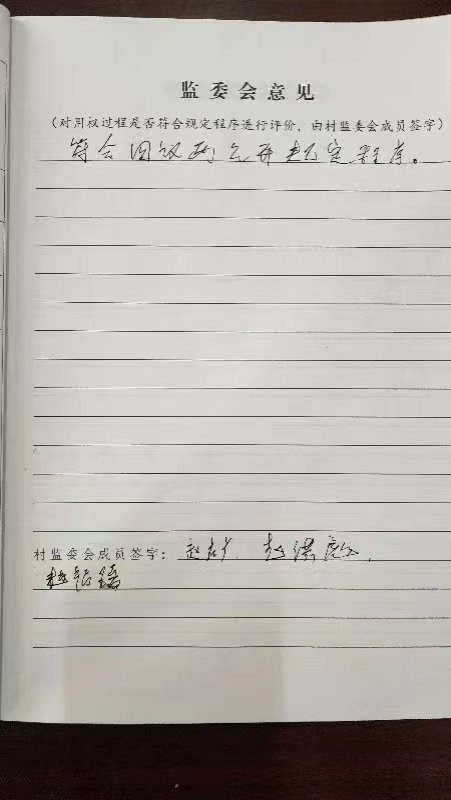 监委会意见
(对用权过程是否符合规定程序进行评价,由村监委会成员签字)
符合四议两公开规定程序。
村监委会成员签字: 赵 赵洪
赵